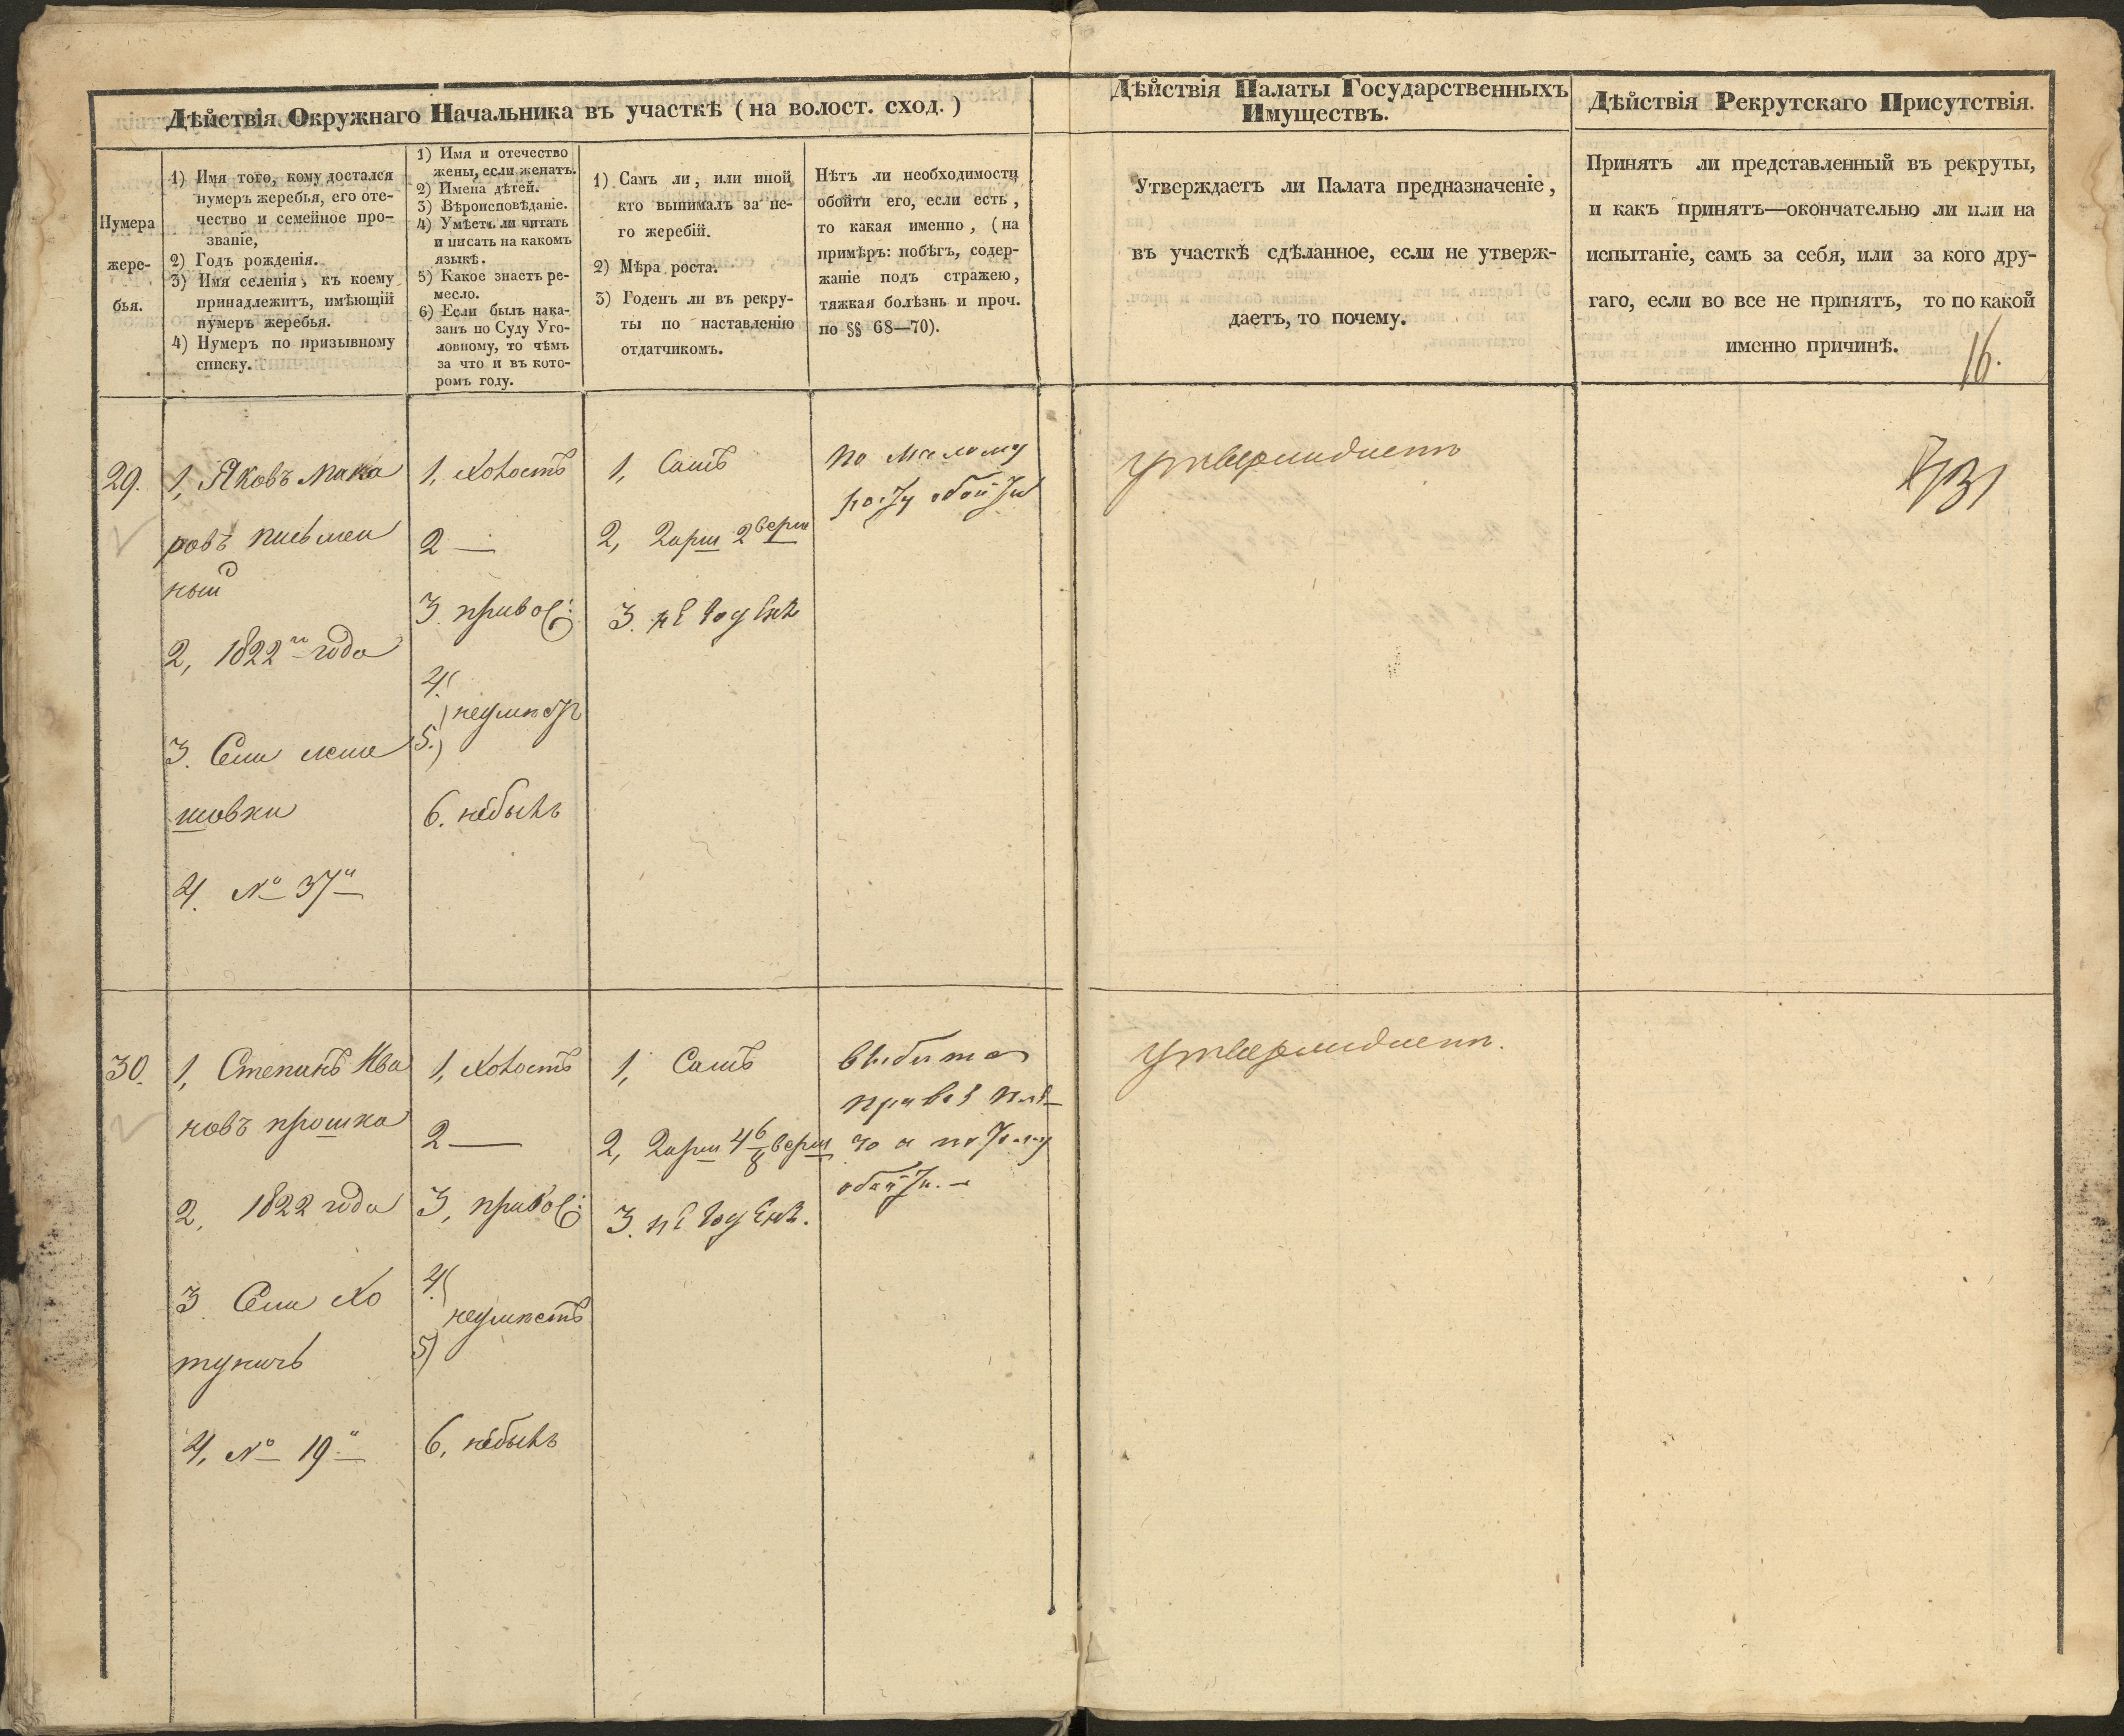 Дѣйствія Окружнаго Начальника въ участкѣ (на волост. сход.)
Нумера
жере-
бья.
1) Имя того, кому достался
нумеръ жеребья, его оте-
чество и семейное про-
званіе,
2) Годъ рожденія.
3) Имя селенія, къ коему
принадлежитъ, имѣющій
нумеръ жеребья.
4) Нумеръ по призывному
списку.
1) Имя и отечество
жены, если женатъ.
2) Имена дѣтей.
3) Вѣроисповѣданіе.
4) Умѣетъ ли читать
и писать на какомъ
языкѣ.
5) Какое знаетъ ре-
месло.
6) Если былъ нака-
занъ по Суду Уго-
ловному, то чѣмъ
за что и въ кото-
ромъ году.
1) Самъ ли, или иной
кто вынималъ за не-
го жеребій.
2) Мѣра роста.
3) Годенъ ли въ рекру-
ты по наставленію
отдатчикомъ.
Нѣтъ ли необходимости
обойти его, если есть,
то какая именно, (на
примѣръ: побѣгъ, содер-
жаніе подъ стражею,
тяжкая болѣзнь и проч.
по §§ 68—70).
Дѣйствія Палаты Государственныхъ
Имуществъ.
Утверждаетъ ли Палата предназначеніе,
въ участкѣ сдѣланное, если не утверж-
даетъ, то почему.
Дѣйствія Рекрутскаго Присутствія.
Принятъ ли представленный въ рекруты,
и какъ принятъ—окончательно ли или на
испытаніе, самъ за себя, или за кого дру-
гаго, если во все не принятъ, то по какой
именно причинѣ.
16.
29.
1, Яковъ Мака
ровъ письмен
ный
2, 1822 года
3. Сел
шовки
4. № 37й
1, Холостъ
2 —
3. право
4.
неумѣетъ
5.)
6. небылъ
1, Самъ
2, 2 арш 2 верш
3. не годенъ
по малому
росту обойти
утверждаетъ
30.
1, Степанъ Ива
новъ прошка
2, 1822 года
3 Сел Хо
туничь
4, № 19й
1, Холостъ
2 —
3, право
4.
неумѣетъ
5)
6, небылъ
1, Самъ
2, 2 арш 4 6/8 верш
3. не годенъ.
выбито
правое пле-
чо а потому
обойти. —
утверждаетъ.